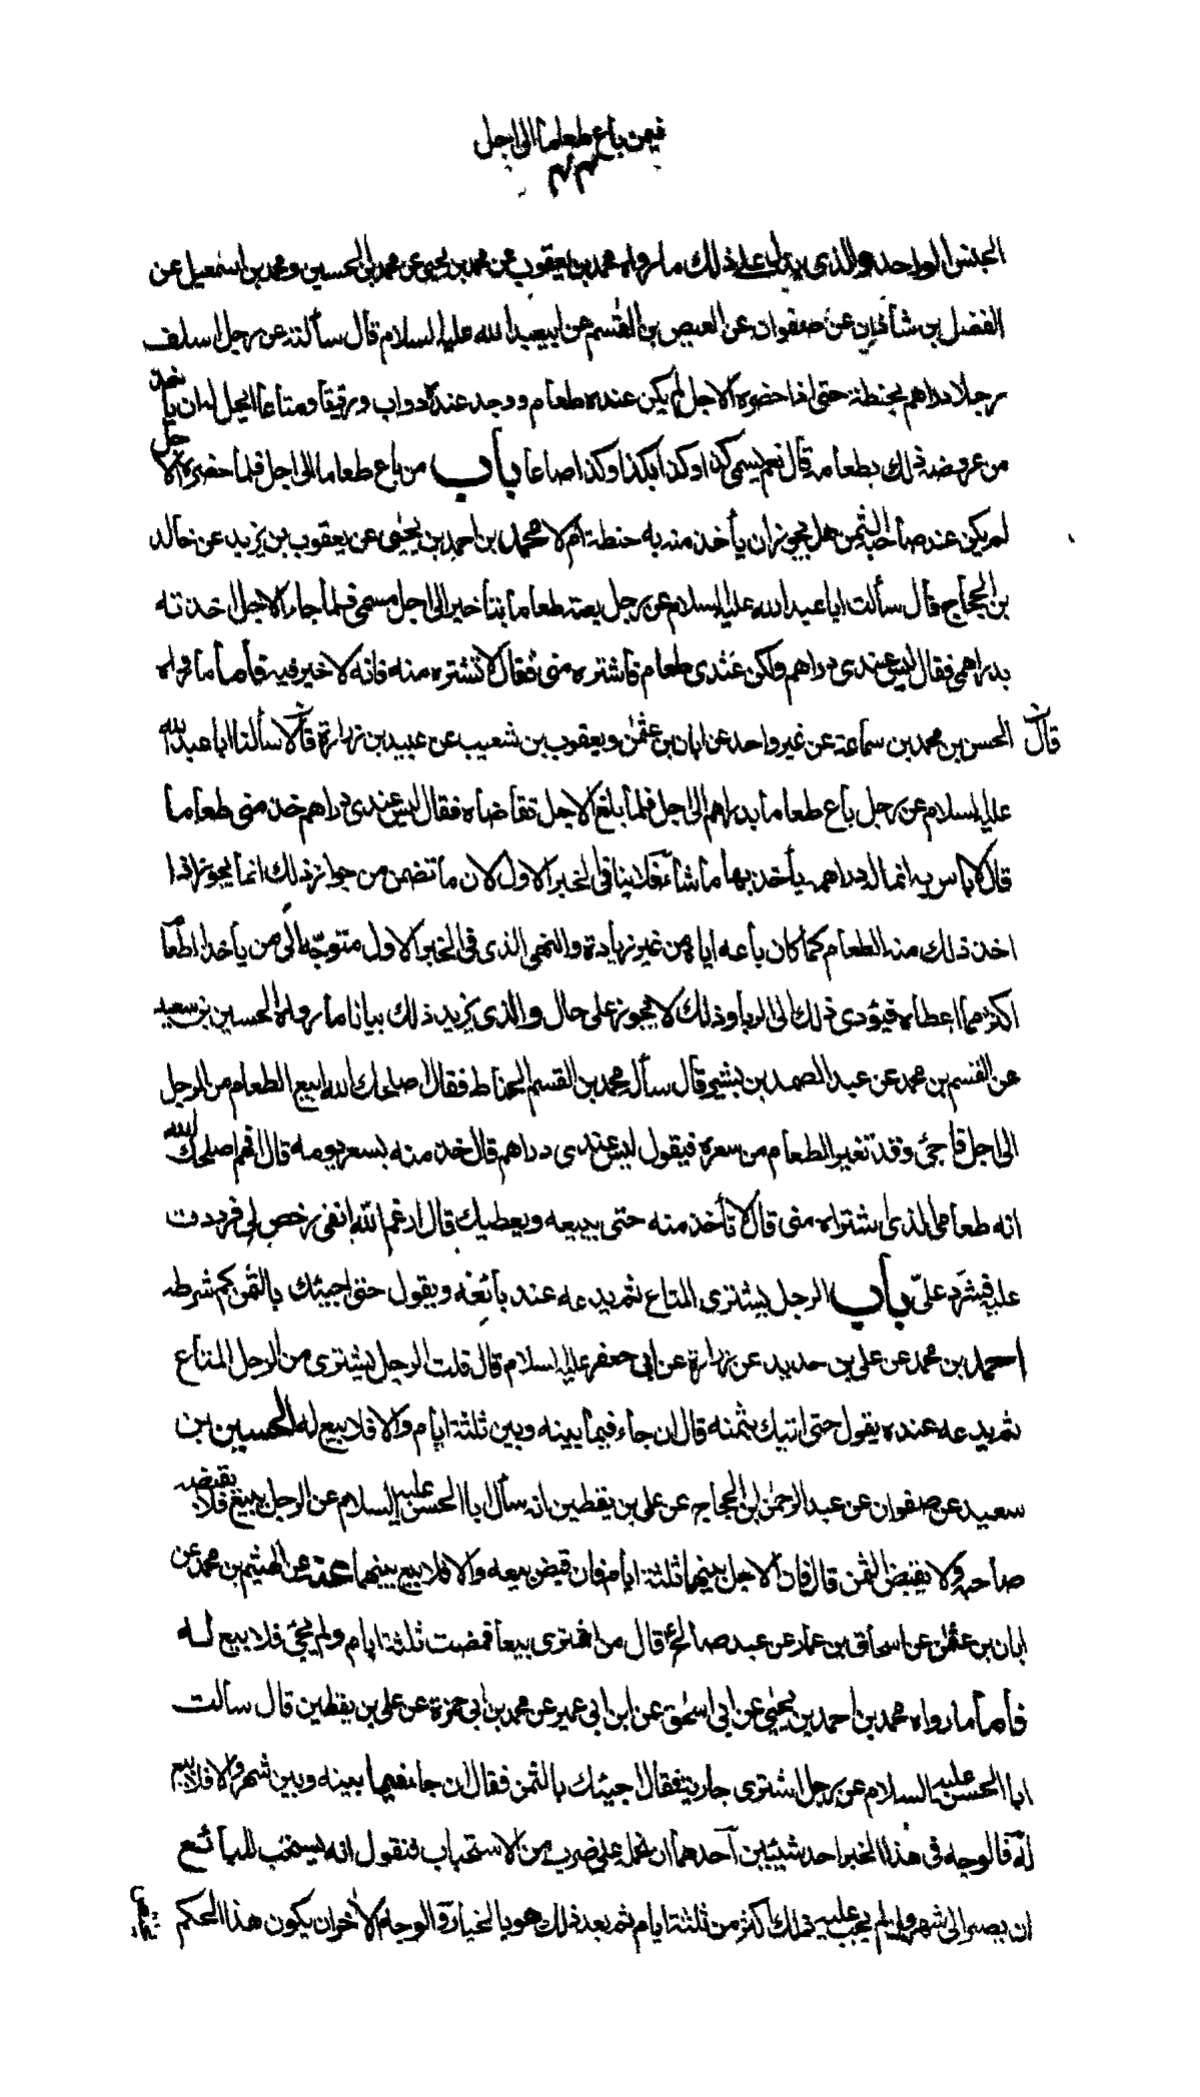 فيمن باع طعاما الى اجل
الجنس الواحد والذى يدل على ذلك ما رواه محمد بن يعقوب عن محمد بن يحيى عن محمد بن الحسين ومحمد بن اسمعيل عن
الفضل بن شاذان عن صفوان عن العيص بن القسم عن ابيعبد الله عليه السلام قال سألته عن رجل اسلف
رجلا دراهم بحنطة حتى اذا حضره الاجل لم يكن عنده طعام ووجد عنده دواب ورقيقا ومتاعا ايحل له ان يأخذ
من عروضه ذلك بطعامه قال نعم يسمى كذا وكذا بكذا وكذا صاعا باب من باع طعاما الى اجل فلما حضره الاجل
لم يكن عند صاحبه الثمن هل يجوز ان يأخذ منه به حنطة ام لا محمد بن احمد بن يحيى عن يعقوب بن يزيد عن خالد
بن الحجاج قال سألت ابا عبد الله عليه السلام عن رجل بعته طعاما بتأخير الى اجل مسمى فلما جاء الاجل اخذته
بدراهمى فقال ليس عندى دراهم ولكن عندى طعام فاشتره منى فقال لا تشتره منه فانه لا خير فيه فأما ما رواه
الحسن بن محمد بن سماعة عن غير واحد عن ابان بن عثمن ويعقوب بن شعيب عن عبيد بن زرارة قالا سألنا ابا عبد الله
قال
عليه السلام عن رجل باع طعاما بدراهم الى اجل فلما بلغ الاجل تقاضاه فقال ليس عندى دراهم خذ منى طعاما
قال لا باس به انما له دراهمه يأخذ بها ما شاء فلا ينافى الخبر الاول لان ما تضمن من جواز ذلك انما يجوز اذا
اخذ ذلك منه الطعام كما كان باعه اياه من غير زيادة والنهى الذى فى الخبر الاول متوجه الى من يأخذ اطعاما
اكثر مما اعطاه فيؤدى ذلك الى الربا وذلك لا يجوز على حال والذى يزيد ذلك بيانا ما رواه الحسين بن سعيد
عن القسم بن محمد عن عبد الصمد بن بشير قال سأل محمد بن القسم الحناط فقال اصلحك الله ابيع الطعام من الرجل
الى اجل فأجئ وقد تغير الطعام من سعره فيقول ليس عندى دراهم قال خذ منه بسعر يومه قال افهم اصلحك الله
انه طعامى الذى اشتراه منى قال لا تأخذ منه حتى يبيعه ويعطيك قال ارغم الله انفى رخص لى فرددت
عليه فشدد علىّ باب الرجل يشترى المتاع ثم يدعه عند بائعه ويقول حتى اجيئك بالثمن كم شرطه
احمد بن محمد عن على بن حديد عن زرارة عن ابى جعفر عليه السلام قال قلت الرجل يشترى من الرجل المتاع
ثم يدعه عنده يقول حتى اتيك بثمنه قال ان جاء فيما بينه وبين ثلثة ايام والا فلا بيع له الحسين بن
سعيد عن صفوان عن عبد الرحمن بن الحجاج عن على بن يقطين انه سأل ابا الحسن عليه السلام عن الرجل يبيع فلا يقبضه
صاحبه ولا يقبض الثمن قال فان الاجل بينهما ثلثة ايام فان قبض بيعه والا فلا بيع بينهما عنه عن الهيثم بن محمد عن
ابان بن عثمن عن اسحاق بن عمار عن عبد صالح قال من اشترى بيعا فمضت ثلثة ايام ولم يجئ فلا بيع له
فأما ما رواه محمد بن احمد بن يحيى عن ابى اسحق عن ابن ابى عمير عن محمد بن ابى حمزة عن على بن يقطين قال سألت
ابا الحسن عليه السلام عن رجل اشترى جارية فقال اجيئك بالثمن فقال ان جاء فيما بينه وبين شهر والا فلا بيع
له فالوجه فى هذا الخبر احد شيئين احدهما ان نحمله على ضرب من الاستحباب فنقول انه يستحب للبائع
ان يصبر الى شهر وان لم يجب عليه ذلك اكثر من ثلثة ايام ثم بعد ذلك هو بالخيار والوجه الاخر ان يكون هذا الحكم